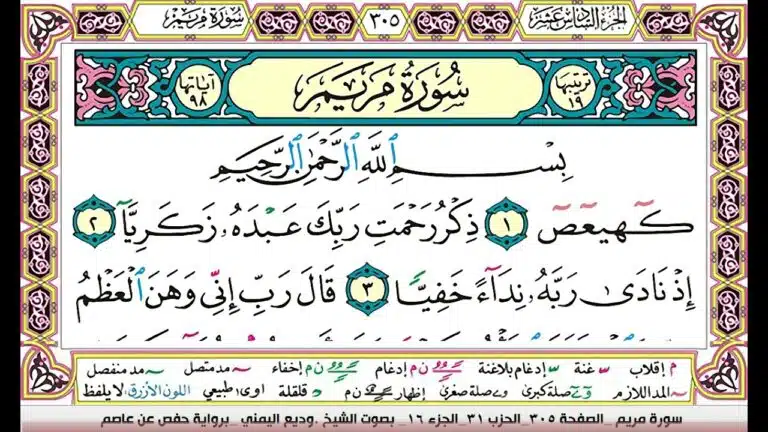 سورة مريم ٣٠٥ الجزء السادس عشر
ترتيبها ١٩ سُورَةُ مَرْيَمَ آياتها ٩٨
بِسْمِ ٱللَّهِ ٱلرَّحْمَٰنِ ٱلرَّحِيمِ
كٓهيعٓصٓ ١ ذِكْرُ رَحْمَتِ رَبِّكَ عَبْدَهُۥ زَكَرِيَّآ ٢
إِذْ نَادَىٰ رَبَّهُۥ نِدَآءً خَفِيًّا ٣ قَالَ رَبِّ إِنِّى وَهَنَ ٱلْعَظْمُ
م إقلاب غنة إدغام بلاغنة ن م إدغام ن م إخفاء مد متصل مد منفصل
المد اللازم صلة كبرى و صلة صغرى إظهار ن م قلقلة اوى طبيعي اللون الأزرق لا يلفظ
سورة مريم _ الصفحة ٣٠٥_ الحزب ٣١_الجزء ١٦_ بصوت الشيخ .وديع اليمني _برواية حفص عن عاصم